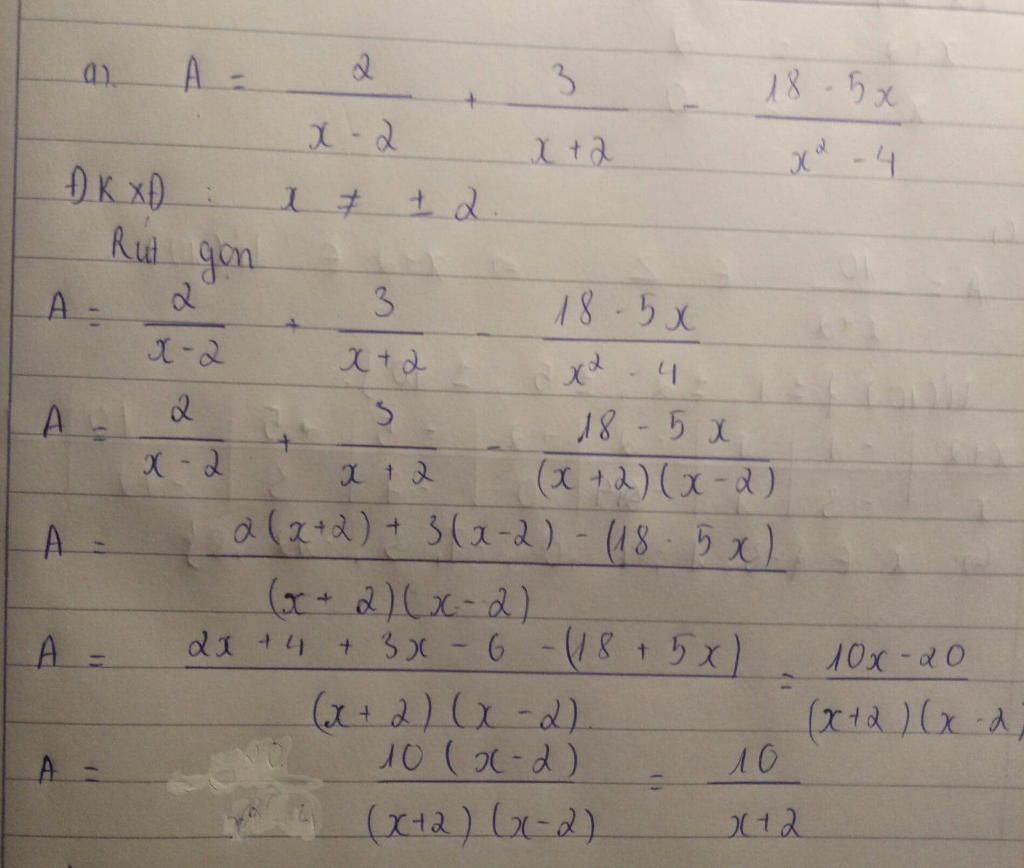 a). A = 2/(x - 2) + 3/(x + 2) - (18 - 5x)/(x² - 4)
ĐKXĐ : x ≠ ± 2.
Rút gọn
A = 2/(x - 2) + 3/(x + 2) - (18 - 5x)/(x² - 4)
A = 2/(x - 2) + 3/(x + 2) - (18 - 5x)/((x + 2)(x - 2))
A = (2(x+2) + 3(x-2) - (18 - 5x))/((x + 2)(x - 2))
A = (2x + 4 + 3x - 6 - (18 + 5x))/((x + 2)(x - 2)) = (10x - 20)/((x+2)(x - 2)
A = 10(x - 2)/((x+2)(x - 2)) = 10/(x+2)